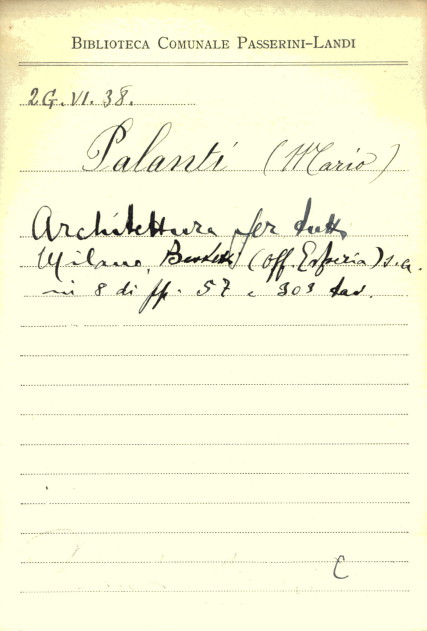 BIBLIOTECA COMUNALE PASSERINI-LANDI
2G.VI.38.
Palanti (Mario)
Architettura per tutti
Milano, Bestetti (Off. Esperia) s.a.
in 8 di pp. 57 e 303 tav.
C